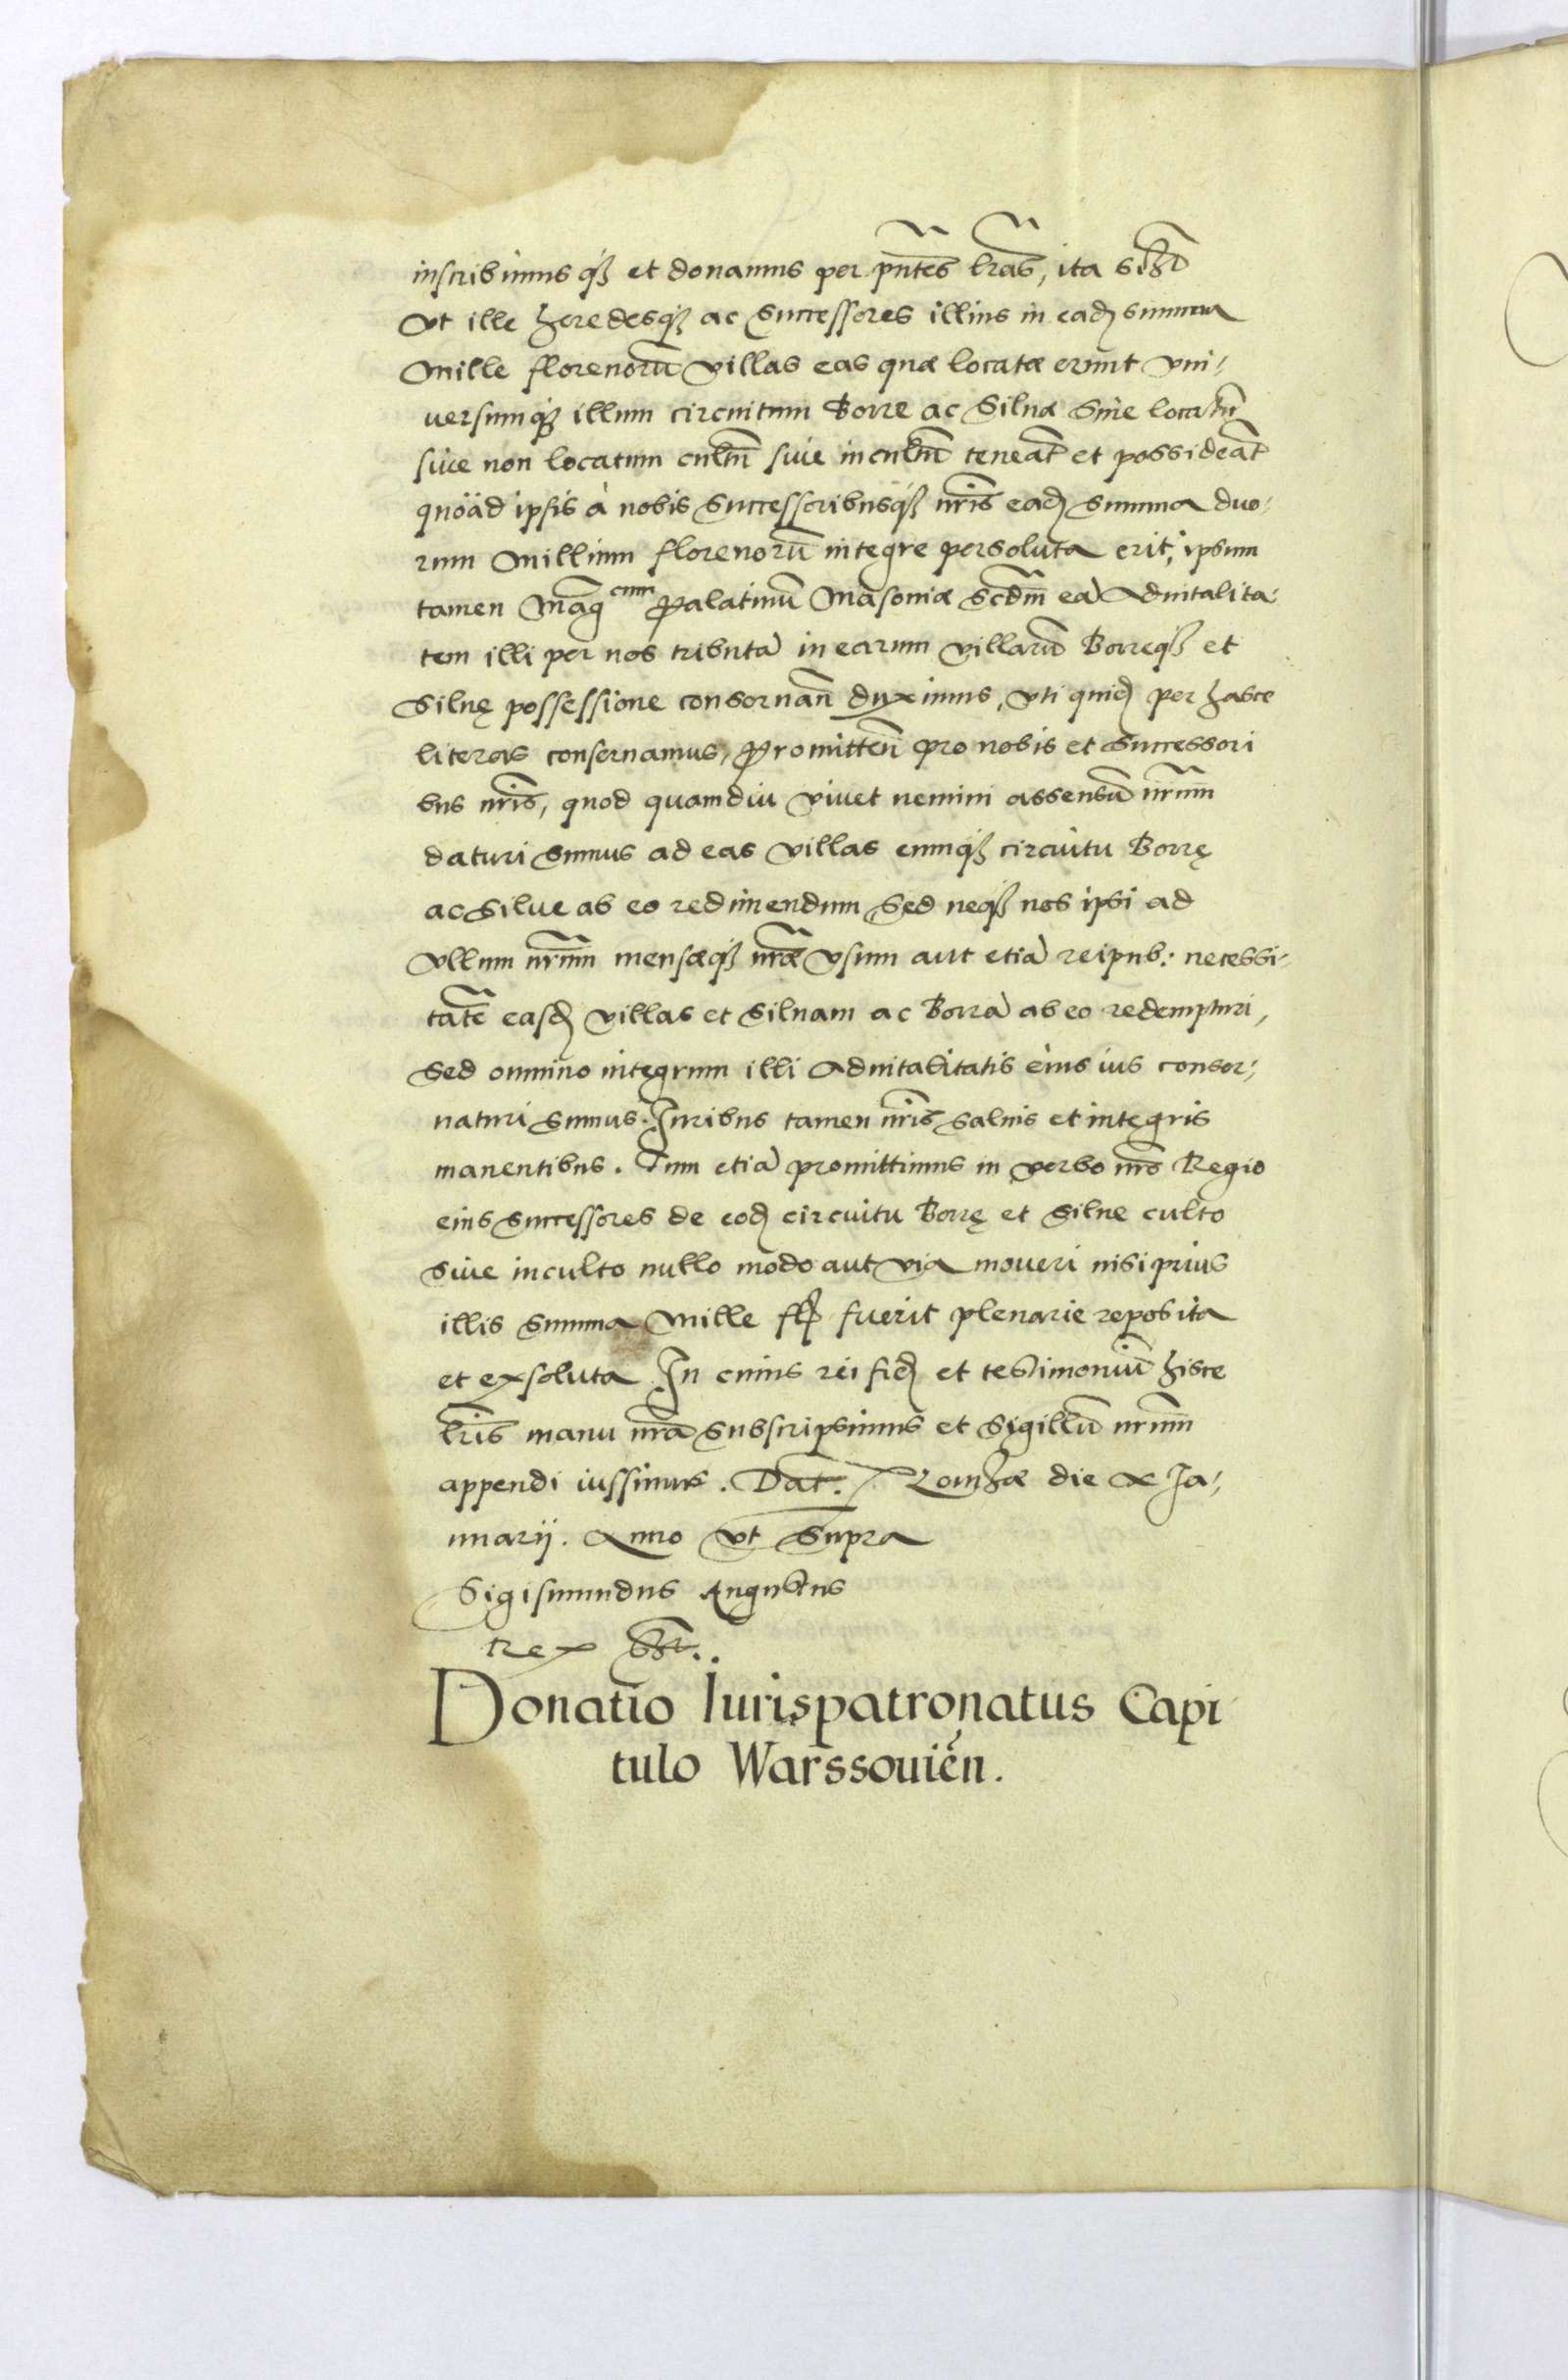 inscribimus qꝫ et donamus per pñtes lr̃as, ita
Vt ille heredesqꝫ ac Successores illius in eadꝫ summa
Mille florenorũ villas eas quæ locatæ erunt vni-
uersumqꝫ illum circuitum Borre ac Siluæ Siue locatũ
siue non locatum cultũ siue incultũ teneãt et possideãt
quoad ipsis à nobis Successoribusqꝫ nr̃is eadꝫ summa duo-
rum Millium florenorũ integre persoluta erit, ipsum
tamen Mag̃cum Palatinũ Masoniæ Scdm̃ eã Aduitalita-
tem illi per nos tributã in earum villarũ Borreqꝫ et
Siluę possessione conseruañ duximus, vti quidꝫ per hasce
literas conseruamus, Promitteñ pro nobis et Successori
bus nr̃is, quod quamdiu viuet nemini assensũ nr̃um
daturi sumus ad eas villas eumqꝫ circuitu Borrę
ac Silue ab eo redimendum Sed neqꝫ nos ipsi ad
vllum nr̃um mensæqꝫ nr̃æ vsum aut etiã reipub: necessi-
tatẽ easdꝫ villas et Siluam ac Borrã ab eo redempturi,
Sed omnino integrum illi Aduitalitatis eius ius conser-
uaturi sumus. Iuribus tamen nr̃is saluis et integris
manentibus. Tum etiã promittimus in verbo nr̃o Regio
eius successores de eodꝫ circuitu Borrę et Silue culto
Siue inculto nullo modo aut via moueri nisi prius
illis summa Mille fl fuerit plenarie reposita
et exsoluta In cuius rei fidꝫ et testimoniũ hisce
lr̃is manu nr̃a subscripsimus et Sigillũ nr̃um
appendi iussimus. Dat̃. Lomzæ die X Ia-
nuarij. Anno vt supra
Sigismundus Augustus
Rex
Donatio Iurispatronatus Capi
tulo Warssouień.